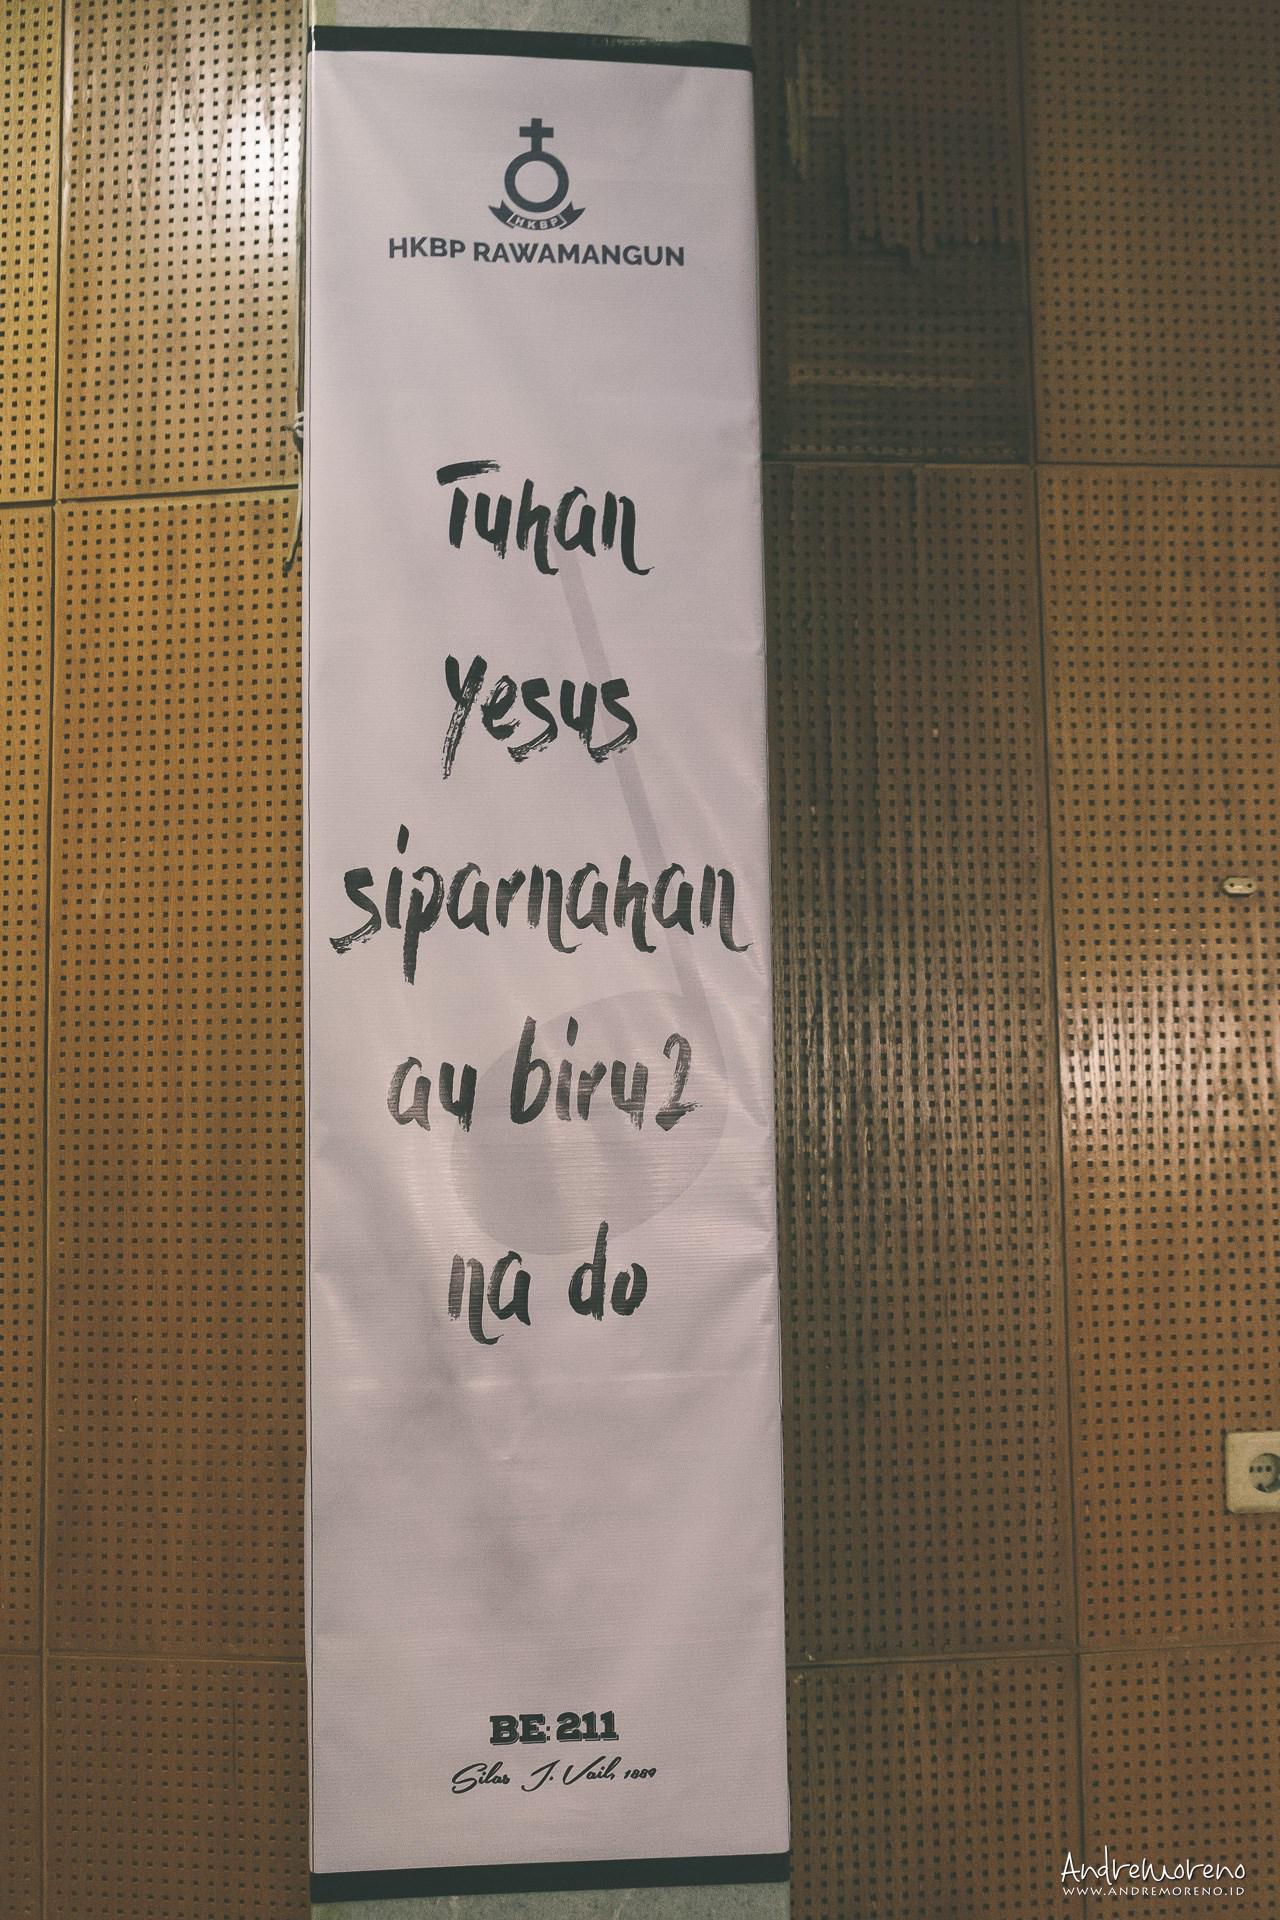 HKBP
HKBP RAWAMANGUN
Tuhan
Yesus
siparnahan
au biru2
na do
BE: 211
Silas J. Vail, 1889
AndreMoreno
WWW.ANDREMORENO.ID